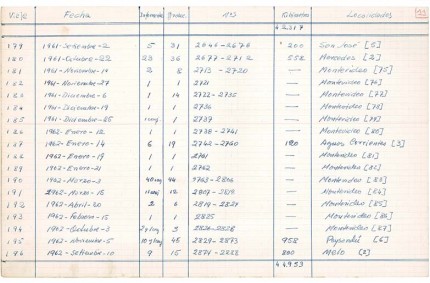 Viaje Fecha Kilómetros Localidades 11
42317
179 1961-Setiembre-2 5 31 2646-2676 200 San José [5]
180 1961-Octubre-22 23 36 2677-2712 552 Mercedes [2]
181 1961-Noviembre-14 2 8 2713-2720 — Montevideo [75]
182 1961-Noviembre-27 1 1 — Montevideo
183 1961-Diciembre-6 1 14 2722-2735 — Montevideo
184 1961-Diciembre-19 1 1 2736 — Montevideo
185 1961-Diciembre-25 1 2737 — Montevideo [79]
186 1962-Enero-12 1 2738-2741 — Montevideo [80]
187 1962-Enero-14 6 19 2742-2760 120 Aguas Corrientes [3]
188 1962-Enero-19 1 1 2761 — Montevideo [81]
189 1962-Enero-21 1 1 2762 — Montevideo
190 1962-Marzo-3 44 2763-2806 — Montevideo [83]
191 1962-Marzo-15 12 2807-2818 — Montevideo [84]
192 1962-Abril-20 2 6 2819-2824 — Montevideo [85]
193 1962-Febrero-15 1 1 2825 — Montevideo [86]
194 1962-Octubre-3 3 2826-2828 — Montevideo [87]
195 1962-Noviembre-5 45 2829-2873 958 Paysandú [6]
196 1962-Setiembre-10 9 15 2874- 800 Melo [2]
44953